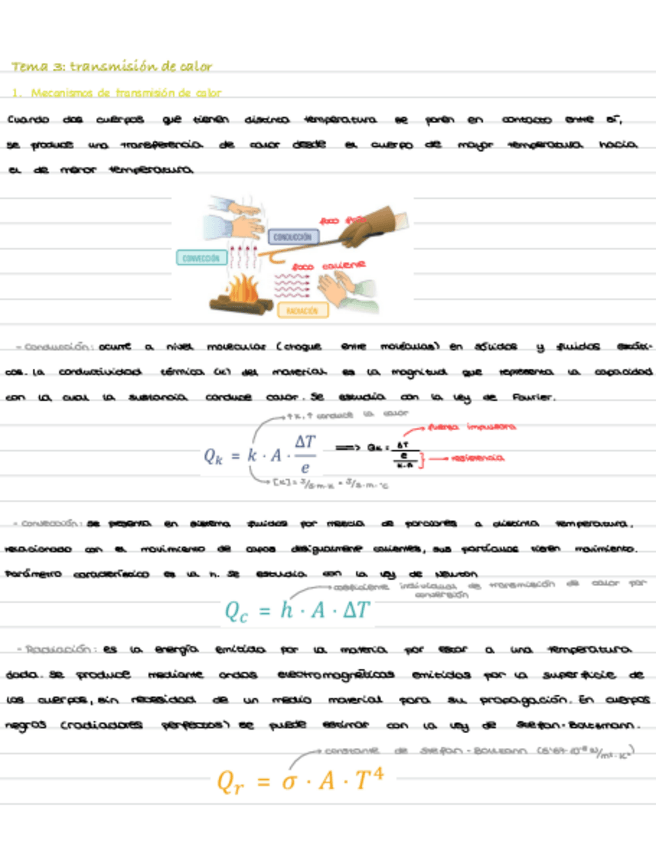 Tema 3: transmisión de calor
1. Mecanismos de transmisión de calor
Cuando dos cuerpos que tienen distinta temperatura se ponen en contacto entre sí,
se produce una transferencia de calor desde el cuerpo de mayor temperatura hacia
el de menor temperatura
foco frío
CONDUCCIÓN
CONVECCIÓN
foco caliente
RADIACIÓN
- Conducción: ocurre a nivel molecular (choque entre moléculas) en sólidos y fluidos estáti-
cos. La conductividad térmica (k) del material es la magnitud que representa la capacidad
con la cual la sustancia conduce calor. Se estudia con la ley de Fourier.
↑k, ↑ conduce la calor
Qk = k · A · ΔT/e ⟹ Qk = ΔT/(e/k·A)
fuerza impulsora
resistencia
[k] = J/s·m·K = J/s·m·°C
- Convección: se presenta en sistema fluidos por mezcla de porciones a distinta temperatura.
relacionado con el movimiento de capas desigualmente calientes, sus partículas tienen movimiento.
Parámetro característico es la h. Se estudia con la ley de Newton
coeficiente individual de transmisión de calor por
convección
Qc = h · A · ΔT
- Radiación: es la energía emitida por la materia por estar a una temperatura
dada. Se produce mediante ondas electromagnéticas emitidas por la superficie de
los cuerpos, sin necesidad de un medio material para su propagación. En cuerpos
negros (radiadores perfectos) se puede estimar con la ley de Stefan-Boltzmann.
constante de Stefan-Boltzmann (5'67·10⁻⁸ W/m²·K⁴)
Qr = σ · A · T⁴